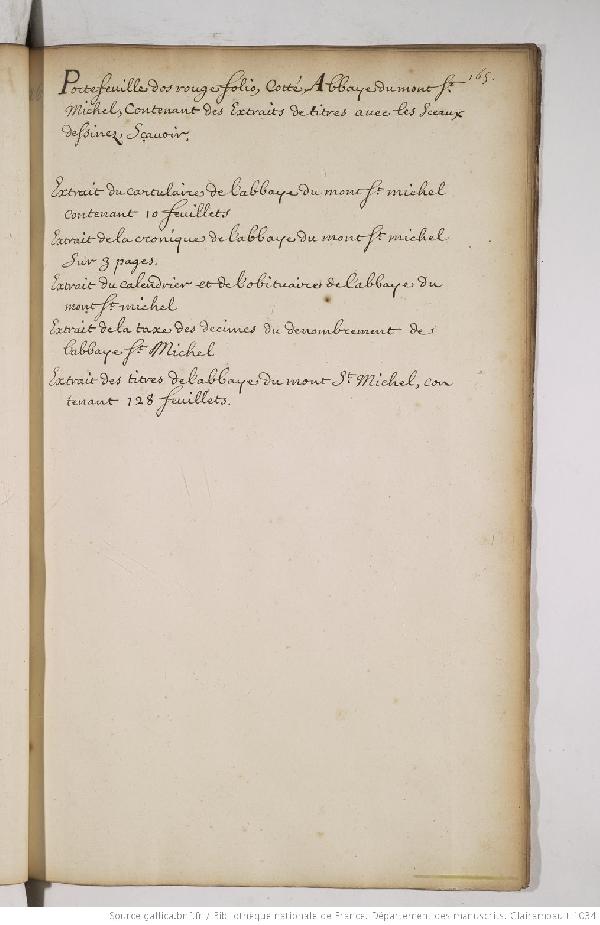 165.
Portefeuille dos rouge folio, Cotté, Abbaye du mont St.
Michel, Contenant des Extraits de titres avec les Sceaux
dessinez, Sçavoir,
Extrait du cartulaire de l'abbaye du mont St michel
contenant 10 feuillets
Extrait de la cronique de l'abbaye du mont St michel
Sur 3 pages.
Extrait du calendrier et de l'obituaire de l'abbaye du
mont St michel
Extrait de la taxe des decimes du denombrement de
l'abbaye St Michel
Extrait des titres de l'abbaye du mont St Michel, con
tenant 128 feuillets.
Source gallica.bnf.fr / Bibliothèque nationale de France. Département des manuscrits. Clairambault 1034